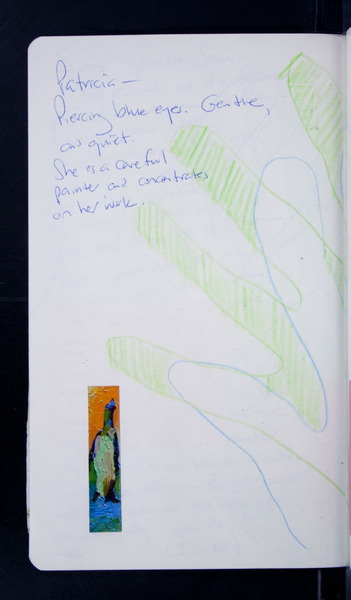 Patricia —
Piercing blue eyes. Gentle,
and quiet.
She is a careful
painter and concentrates
on her work.